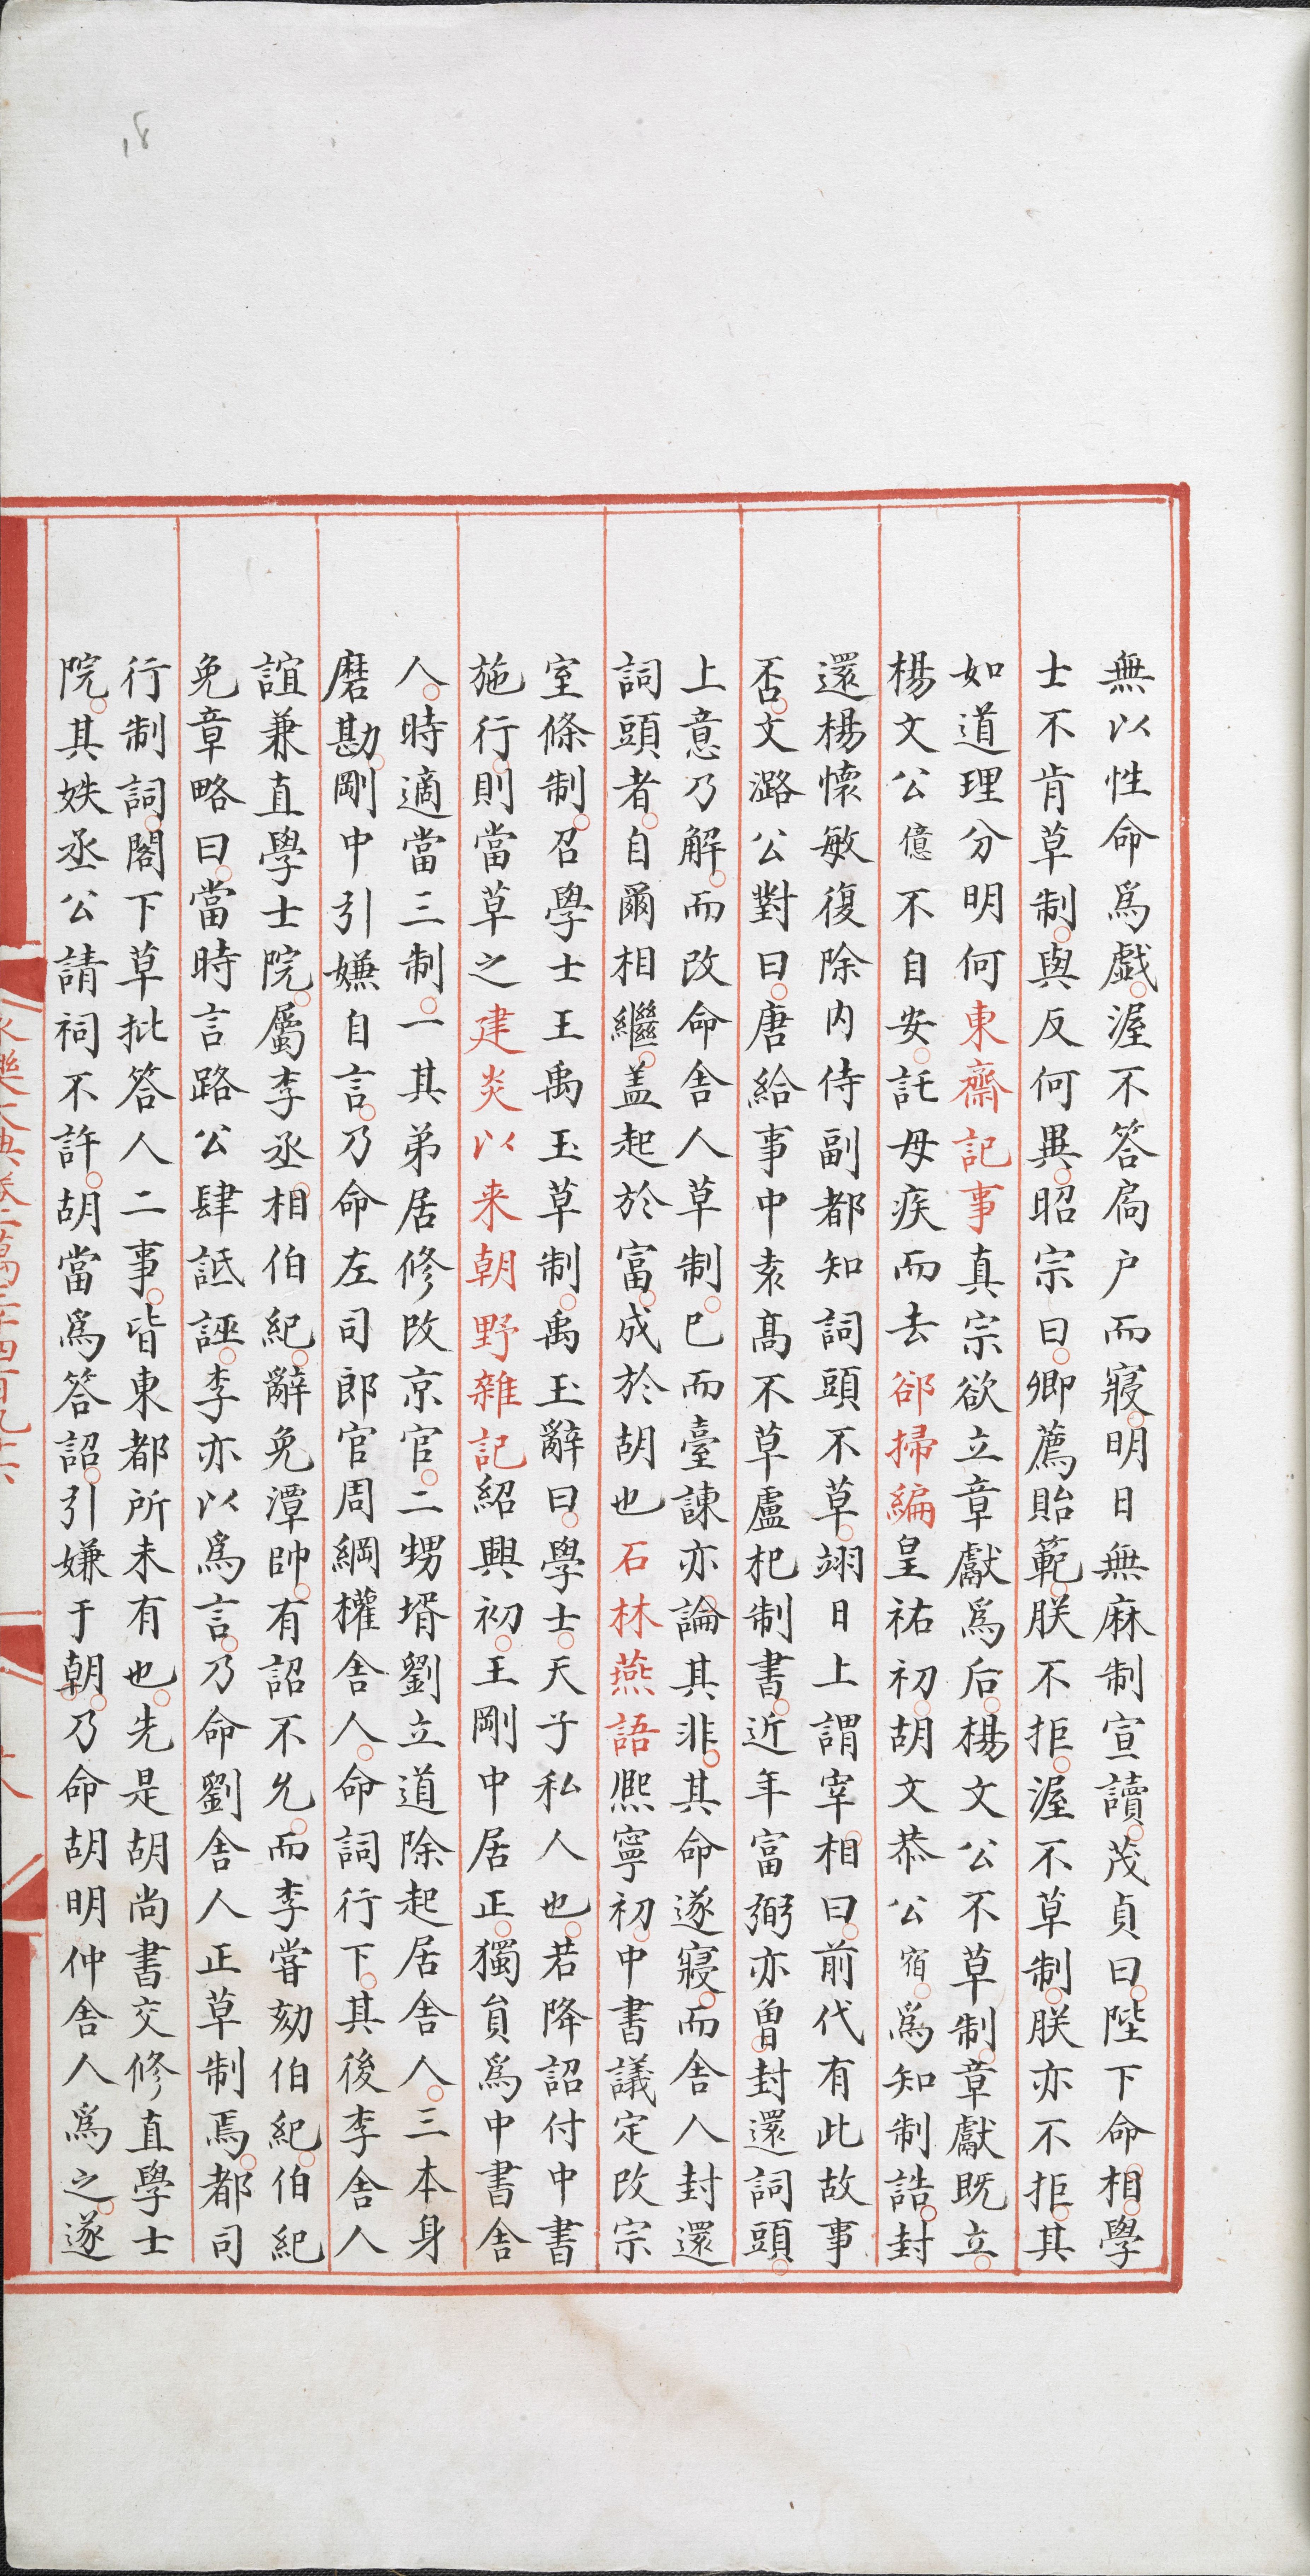 無以性命爲戲渥不答扃户而寢明日無麻制宣讀茂貞曰陛下命相學
士不肯草制與反何異昭宗曰卿薦貽範朕不拒渥不草制朕亦不拒其
如道理分明何東齋記事真宗欲立章獻爲后楊文公不草制章獻既立
楊文公億不自安託母疾而去郤掃編皇祐初胡文恭公宿爲知制誥封
還楊懷敏復除内侍副都知詞頭不草翊日上謂宰相曰前代有此故事
否文潞公對曰唐給事中袁髙不草盧杞制書近年富弼亦曽封還詞頭
上意乃解而改命舍人草制已而臺諫亦論其非其命遂寢而舍人封還
詞頭者自爾相繼盖起於富成於胡也石林燕語熈寧初中書議定改宗
室條制召學士王禹玉草制禹玉辭曰學士天子私人也若降詔付中書
施行則當草之建炎以来朝野雜記紹興初王剛中居正獨員爲中書舍
人時適當三制一其弟居修改京官二甥壻劉立道除起居舍人三本身
磨勘剛中引嫌自言乃命左司郎官周綱權舍人命詞行下其後李舍人
誼兼直學士院屬李丞相伯紀辭免潭帥有詔不允而李嘗劾伯紀伯紀
免章略曰當時言路公肆詆誣李亦以爲言乃命劉舍人正草制焉都司
行制詞閣下草批答人二事皆東都所未有也先是胡尚書交修直學士
院其姪丞公請祠不許胡當爲答詔引嫌于朝乃命胡明仲舍人爲之遂